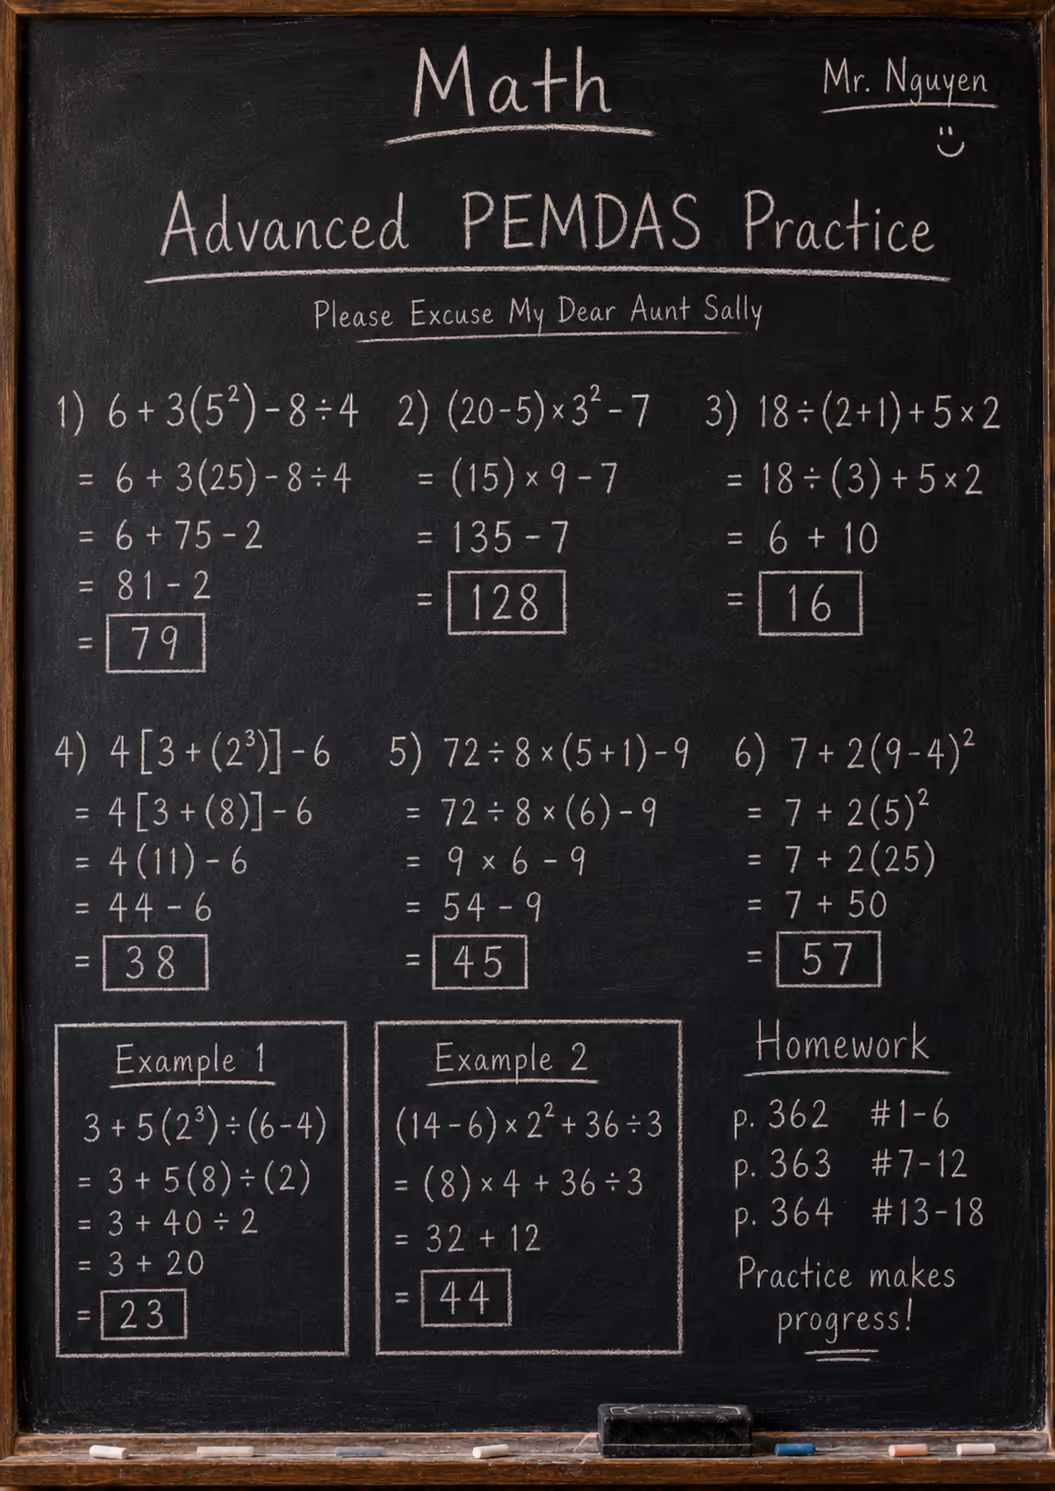 Math
Mr. Nguyen
Advanced PEMDAS Practice
Please Excuse My Dear Aunt Sally
1) 6 + 3(5²) - 8 ÷ 4
= 6 + 3(25) - 8 ÷ 4
= 6 + 75 - 2
= 81 - 2
= 79
2) (20 - 5) × 3² - 7
= (15) × 9 - 7
= 135 - 7
= 128
3) 18 ÷ (2+1) + 5 × 2
= 18 ÷ (3) + 5 × 2
= 6 + 10
= 16
4) 4[3 + (2³)] - 6
= 4[3 + (8)] - 6
= 4(11) - 6
= 44 - 6
= 38
5) 72 ÷ 8 × (5+1) - 9
= 72 ÷ 8 × (6) - 9
= 9 × 6 - 9
= 54 - 9
= 45
6) 7 + 2(9-4)²
= 7 + 2(5)²
= 7 + 2(25)
= 7 + 50
= 57
Example 1
3 + 5(2³) ÷ (6-4)
= 3 + 5(8) ÷ (2)
= 3 + 40 ÷ 2
= 3 + 20
= 23
Example 2
(14 - 6) × 2² + 36 ÷ 3
= (8) × 4 + 36 ÷ 3
= 32 + 12
= 44
Homework
p. 362 #1-6
p. 363 #7-12
p. 364 #13-18
Practice makes
progress!